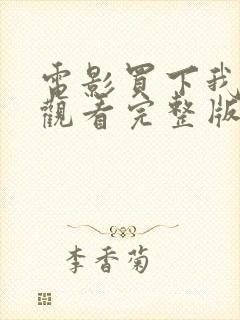 電影買下我
觀看完整版
李香菊